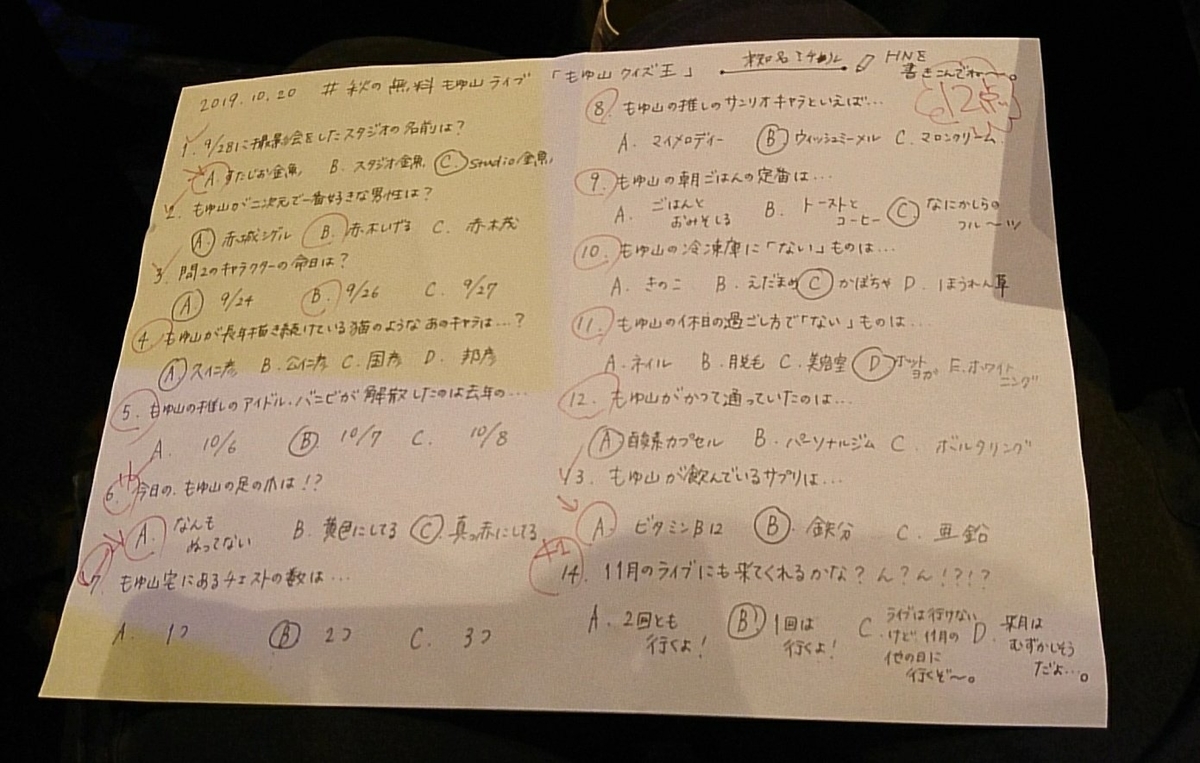 2019.10.20 #秋の無料もゆ山ライブ 「もゆ山クイズ王」
HNを
書きこんでねー。
12点
1. 9/28に撮影会をしたスタジオの名前は?
A. すたじお金魚 B. スタジオ金魚 C. studio金魚
2. もゆ山が二次元で一番好きな男性は?
A. 赤城シゲル B. 赤木しげる C. 赤木茂
3. 問2のキャラクターの命日は?
A 9/24 B. 9/26 C. 9/27
4. もゆ山が長年描き続けている猫のようなあのキャラは…?
A. スイ仁彦 B. 公仁彦 C. 国彦 D. 邦彦
5. もゆ山の推しのアイドル・バニビが解散したのは去年の…
A. 10/6 B 10/7 C. 10/8
6. 今日の、もゆ山の足の爪は!?
+1
A. なんも
ぬってない
B. 黄色にしてる C. 真っ赤にしてる
7. もゆ山宅にあるチェストの数は…
A. 1つ B 2つ C. 3つ
8. もゆ山の推しのサンリオキャラといえば…
A. マイメロディー B ウィッシュミーメル C. マロンクリーム
9. もゆ山の朝ごはんの定番は…
A. ごはんと
おみそしる
B. トーストと
コーヒー
C なにかしらの
フルーツ
10. もゆ山の冷凍庫に「ない」ものは…
A. きのこ B. えだまめ C かぼちゃ D. ほうれん草
11. もゆ山の休日の過ごし方で「ない」ものは…
A. ネイル B. 脱毛 C. 美容室 D ホット
ヨガ
E. ホワイト
ニング
12. もゆ山がかつて通っていたのは…
A 酸素カプセル B. パーソナルジム C. ボルタリング
13. もゆ山が飲んでいるサプリは…
A ビタミンB12 B. 鉄分 C. 亜鉛
+1
14. 11月のライブにも来てくれるかな? ん?ん!?!?
A. 2回とも
行くよ!
B. 1回は
行くよ!
C. ライブは行けない
けど、11月の
他の日に
行くぞ〜。
D. 来月は
むずかしそう
だよ…。